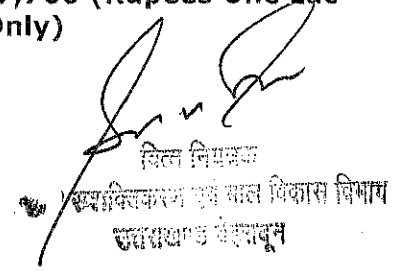 (Rupees One Lac
Only)
वित्त नियंत्रक
सशक्तिकरण एवं बाल विकास विभाग
उत्तराखण्ड देहरादून